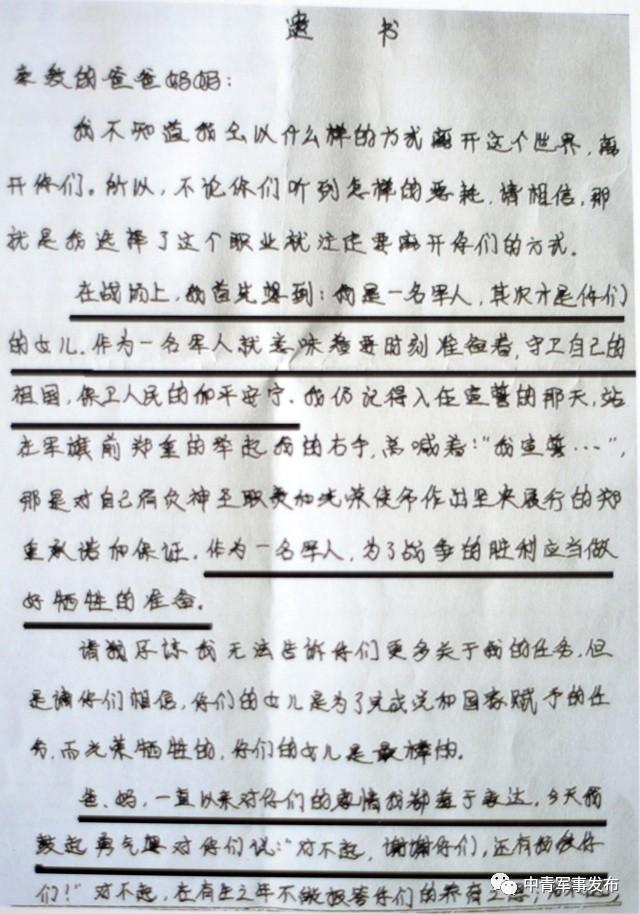 遗 书
亲爱的爸爸妈妈：
我不知道我会以什么样的方式离开这个世界，离
开你们。所以，不论你们听到怎样的恶耗，请相信，那
就是我选择了这个职业就注定要离开你们的方式。
在战场上，我首先想到：我是一名军人，其次才是你们
的女儿。作为一名军人就意味着要时刻准备着，守卫自己的
祖国，保卫人民的和平安宁。我仍记得入伍宣誓的那天，站
在军旗前郑重的举起我的右手，高喊着："我宣誓……"，
那是对自己肩负神圣职责和光荣使命作出坚决履行的郑
重承诺和保证。作为一名军人，为了战争的胜利应当做
好牺牲的准备。
请我原谅我无法告诉你们更多关于我的任务，但
是请你们相信，你们的女儿是为了完成党和国家赋予的任
务，而光荣牺牲的，你们的女儿是最棒的。
爸、妈，一直以来对你们的感情我都羞于表达，今天我
鼓起勇气要对你们说："对不起，谢谢你们，还有我爱你
们！"对不起，在有生之年不能报答你们的养育之恩，
中青军事发布